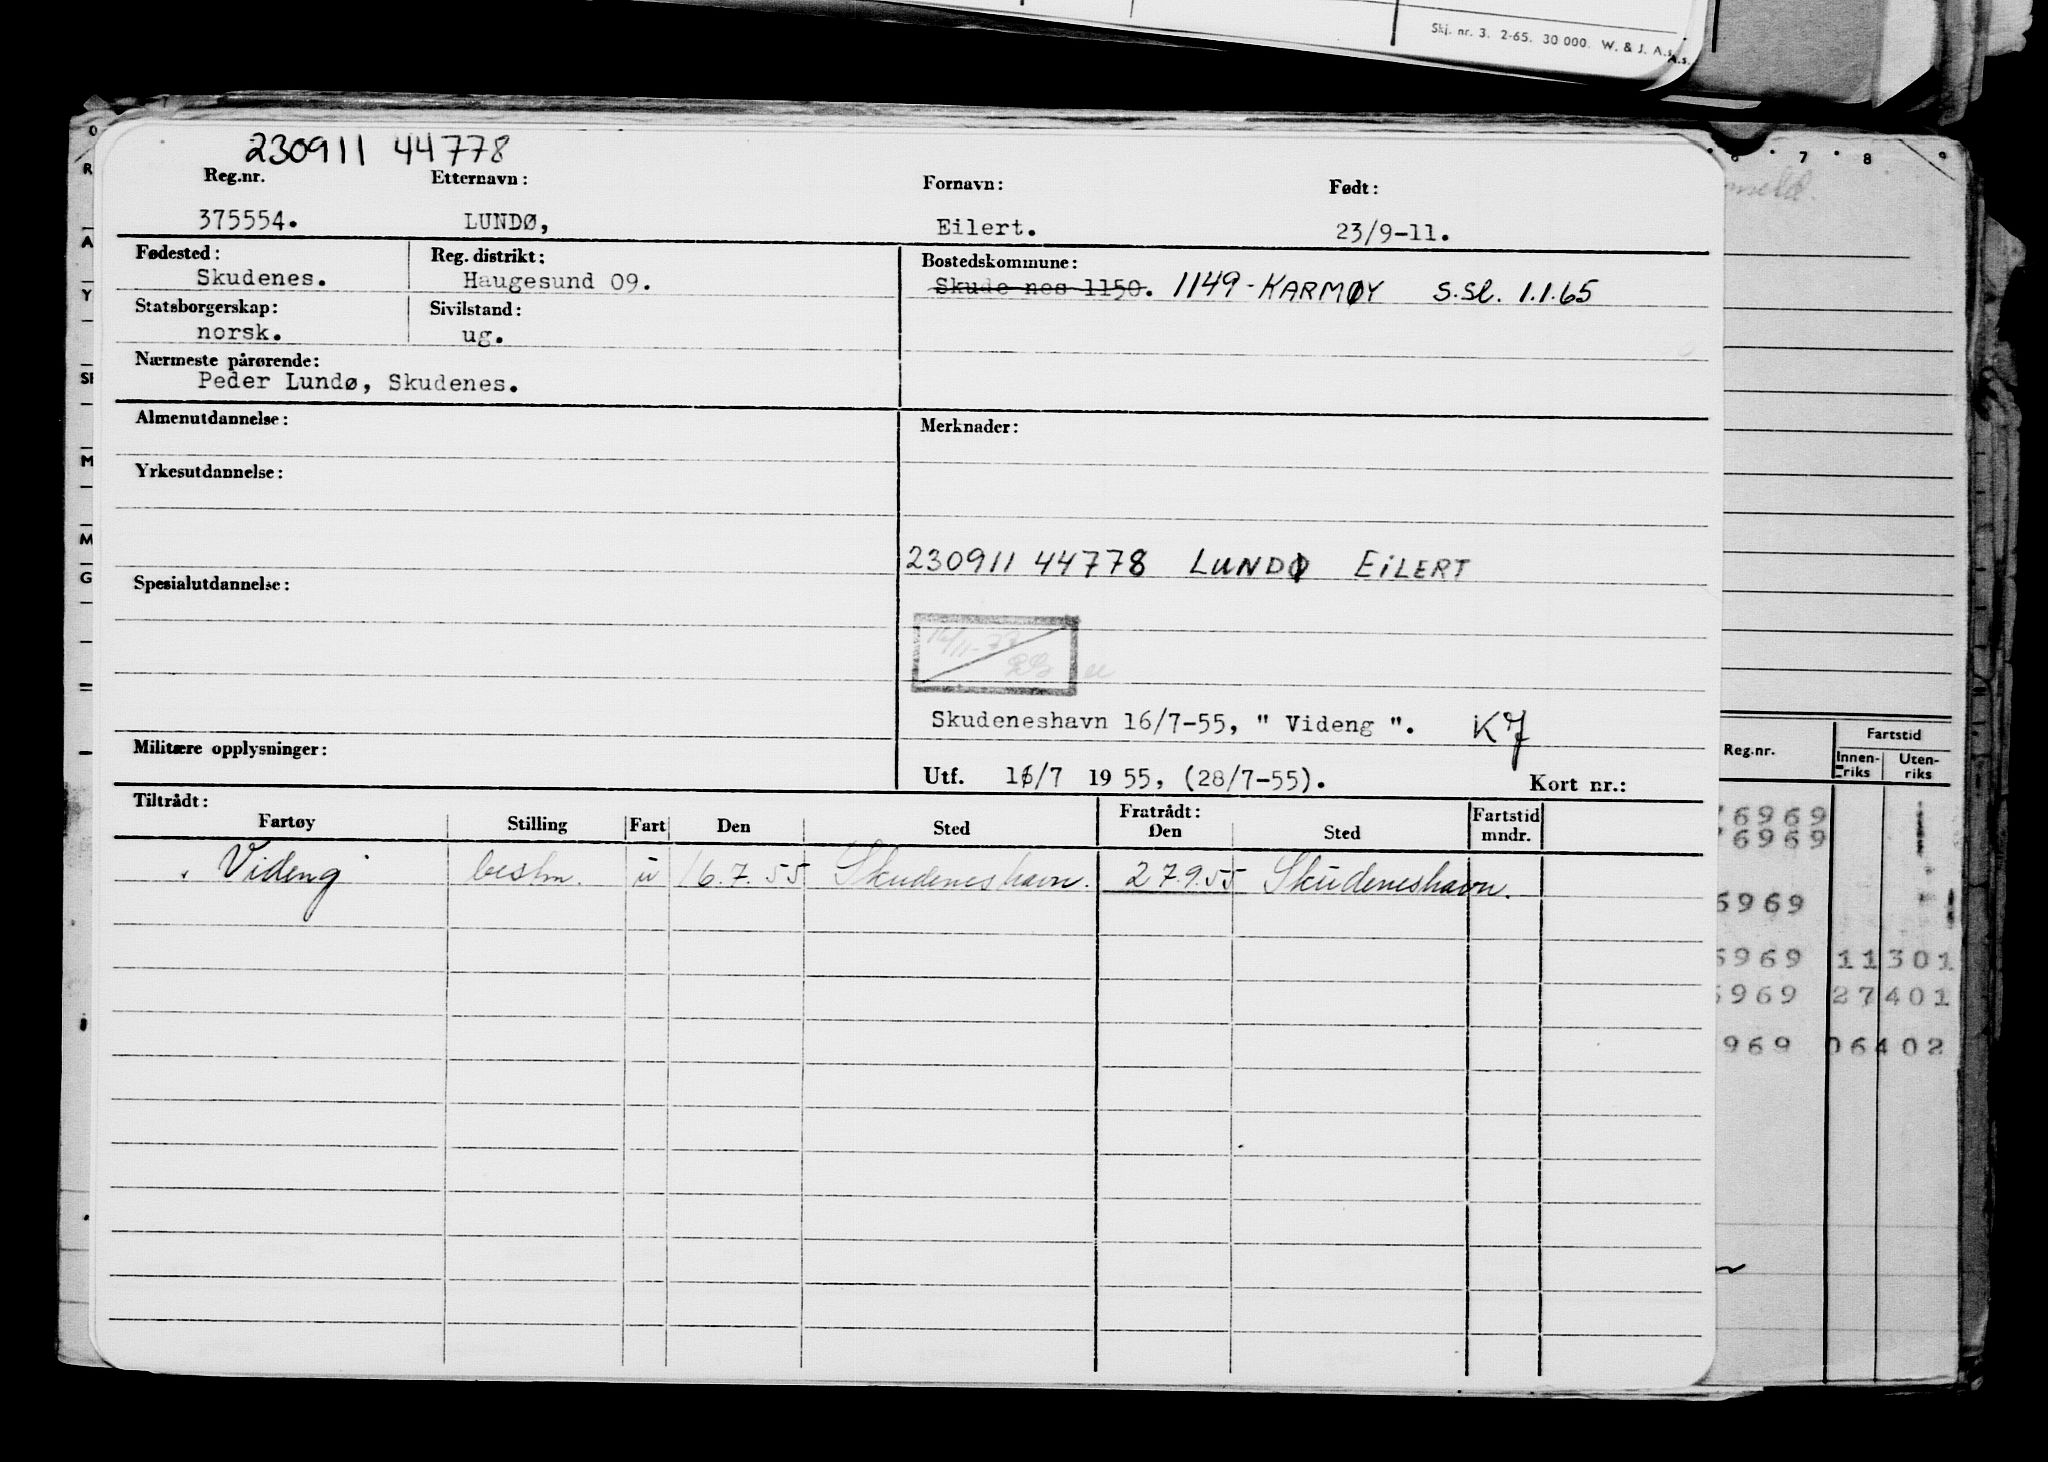 Skj. nr. 3. 2-65. 30 000. W. & J. A.s.
A.s.
230911 44778
Reg.nr. Etternavn: Fornavn: Født:
375554. LUNDØ, Eilert. 23/9-11.
Fødested: Reg. distrikt: Bostedskommune:
Skudenes. Haugesund 09. Skude nes 1150. 1149-KARMØY S.Sl. 1.1.65
Statsborgerskap: Sivilstand:
norsk. ug.
Nærmeste pårørende:
Peder Lundø, Skudenes.
Almenutdannelse: Merknader:
Yrkesutdannelse:
230911 44778 LUNDØ EiLERT
Spesialutdannelse:
Skudeneshavn 16/7-55, " Videng ". K7
Militære opplysninger:
Utf. 16/7 19 55, (28/7-55). Kort nr.:
Tiltrådt: Fratrådt: Fartstid
Fartøy Stilling Fart Den Sted Den Sted mndr.
Videng bestm. u 16.7.55 Skudeneshavn. 27.9.55 Skudeneshavn.
7 8 9
Reg.nr. Fartstid
Innen-riks Uten-riks
6969
6969
6969
6969 11301
6969 27401
969 06402
O
R
A
Y
M
M
G